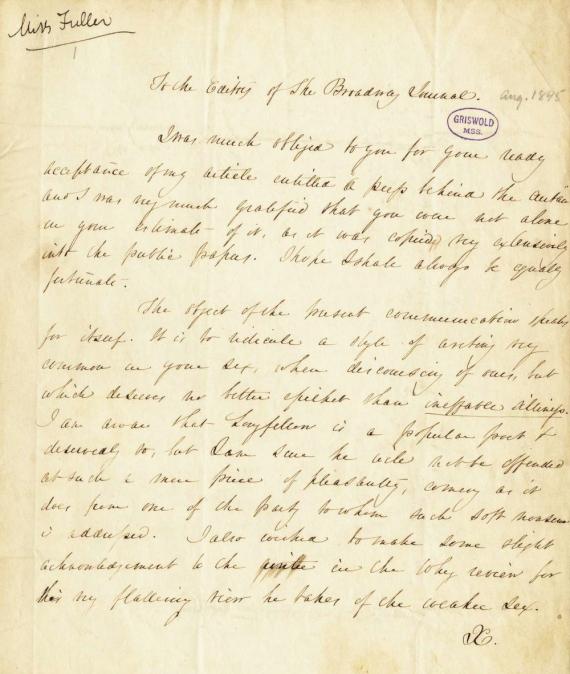 Miss Fuller
To the Editors of The Broadway Journal. Aug. 1845
GRISWOLD
MSS.
I was much obliged to you for your ready
acceptance of my article entitled a peep behind the curtain
and I was very much gratified that you were not alone
in your estimate of it, as it was copied very extensively
into the public papers. I hope I shall always be equally
fortunate.
The object of the present communication speaks
for itself. It is to ridicule a style of writing very
common in your sex, when discoursing of ours, but
which deserves no better epithet than ineffable silliness.
I am aware that Longfellow is a popular poet &
deservedly so, but I am sure he will not be offended
at such a mere piece of pleasantry, coming as it
does from one of the party to whom such soft nonsense
is addressed. I also wished to make some slight
acknowledgement to the in the Whig review for
his very flattering view he takes of the weaker sex.
X.